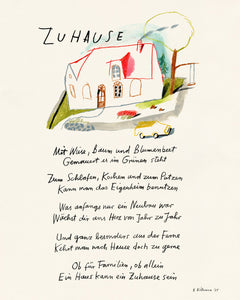 ZUHAUSE
Mit Wiese, Baum und Blumenbeet
Gemauert es im Grünen steht
Zum Schlafen, Kochen und zum Putzen
Kann man das Eigenheim benutzen
Was anfangs nur ein Neubau war
Wächst dir ans Herz von Jahr zu Jahr
Und ganz besonders aus der Ferne
Kehrt man nach Hause doch zu gerne
Ob für Familien, ob allein
Ein Haus kann ein Zuhause sein